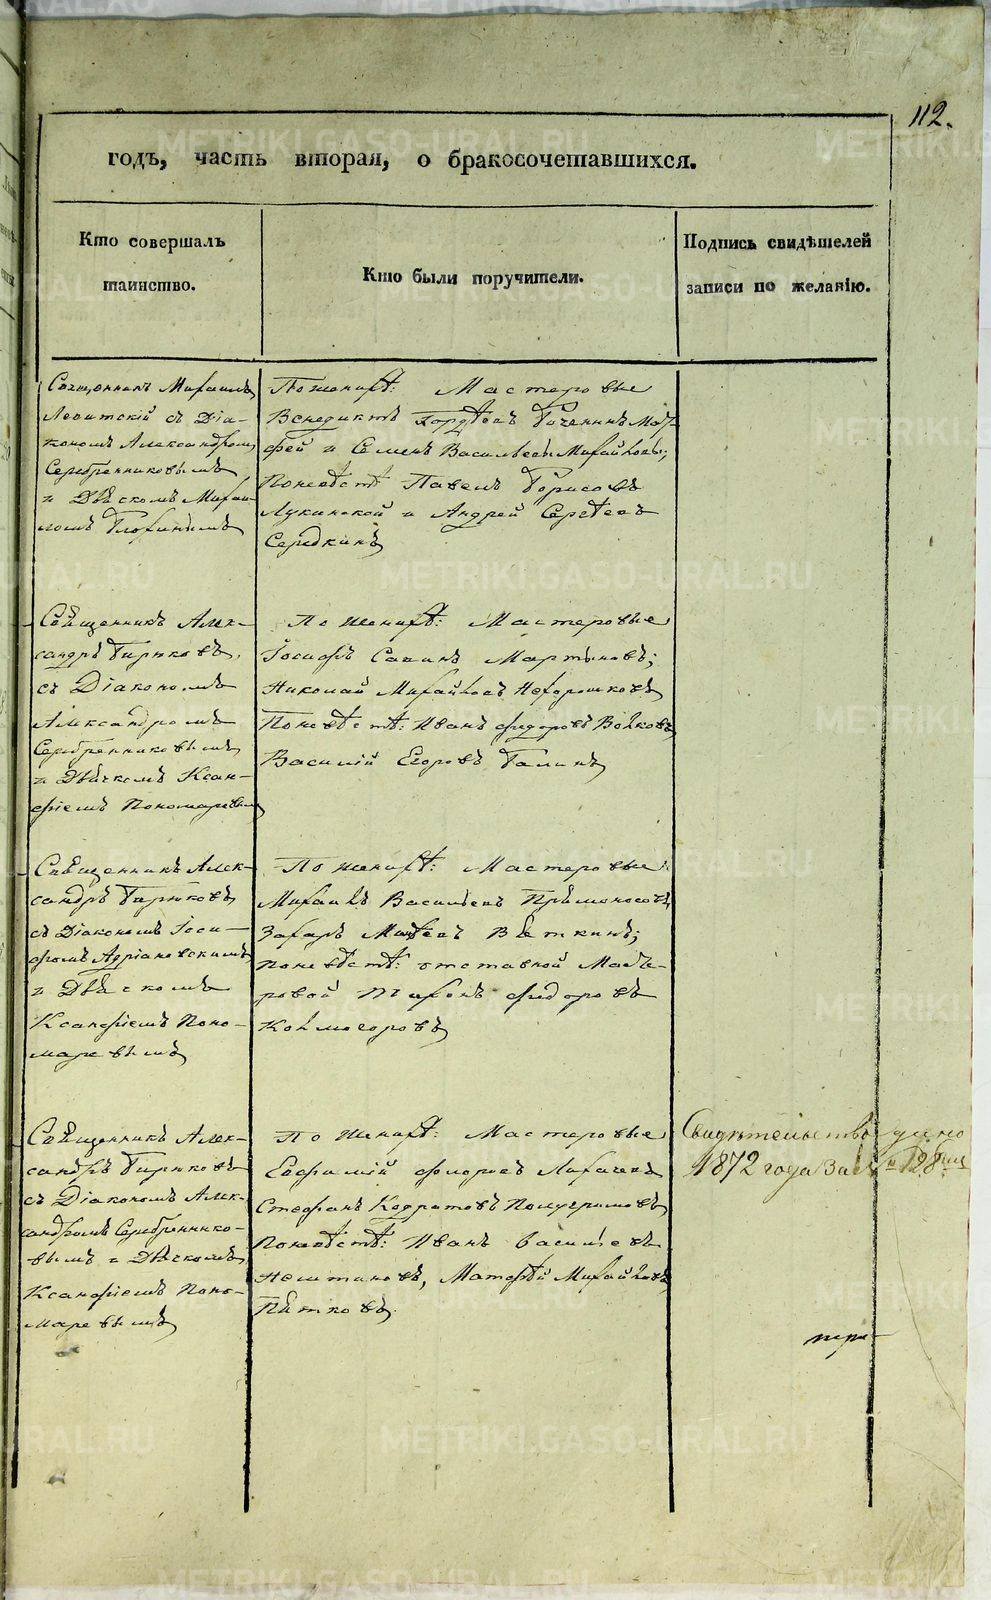 112.
годъ, часть вторая, о бракосочетавшихся.
Кто совершалъ
таинство.
Кто были поручители.
Подпись свидѣтелей
записи по желанію.
Священникъ Михаилъ
Левитскій съ Діа-
кономъ Александромъ
Серебренниковымъ
и Дьячкомъ Михаи-
ломъ
По женихѣ: Мастеровые
Венедиктъ Гордѣевъ
фей и Семенъ Васильевы Михайловы;
Поневѣстѣ Павелъ Борисовъ
Лукинской и Андрей Сергѣевъ
Середкинъ
Священникъ Алек-
сандръ Бирюковъ
съ Діакономъ
Александромъ
Серебренниковымъ
и Дьячкомъ Ксан-
фіемъ Пономаревымъ
По женихѣ: Мастеровые
Іосифъ Савинъ Мартыновъ;
Николай Михайловъ Нехорошковъ
Поневѣстѣ: Иванъ Федоровъ Волковъ
Василій Егоровъ Галинъ
Священникъ Алек-
сандръ Бирюковъ
съ Діакономъ Іоси-
фомъ Адріановскимъ
и Дьячкомъ
Ксанфіемъ Поно-
маревымъ
По женихѣ: Мастеровые:
Михаилъ Васильевъ Прямоносовъ
Захаръ Матвѣевъ Вяткинъ;
поневѣстѣ: отставной Масте-
ровой Тихонъ Федоровъ
Колмогоровъ
Священникъ Алек-
сандръ Бирюковъ
съ Діакономъ Алек-
сандромъ Серебреннико-
вымъ и Дьячкомъ
Ксанфіемъ Поно-
маревымъ
По женихѣ: Мастеровые
Евфимій Лихачевъ
Стефанъ Кодратовъ
Поневѣстѣ: Иванъ Васильевъ
Нештановъ, Матфѣй Михайловъ
Пятковъ
Свидѣтельство дано
1872 года За № 128
METRIKI.GASO-URAL.RU